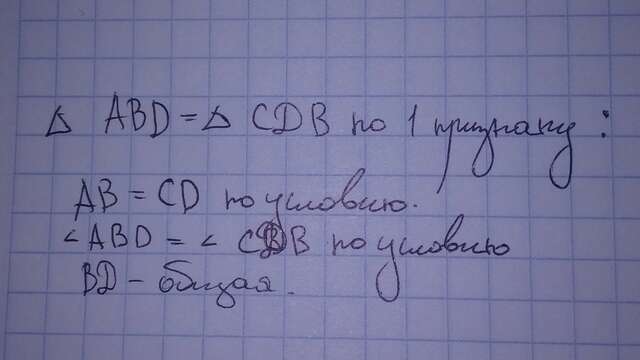 △ ABD = △ CDB по 1 признаку :
AB = CD по условию.
∠ABD = ∠ CDB по условию
BD - общая.